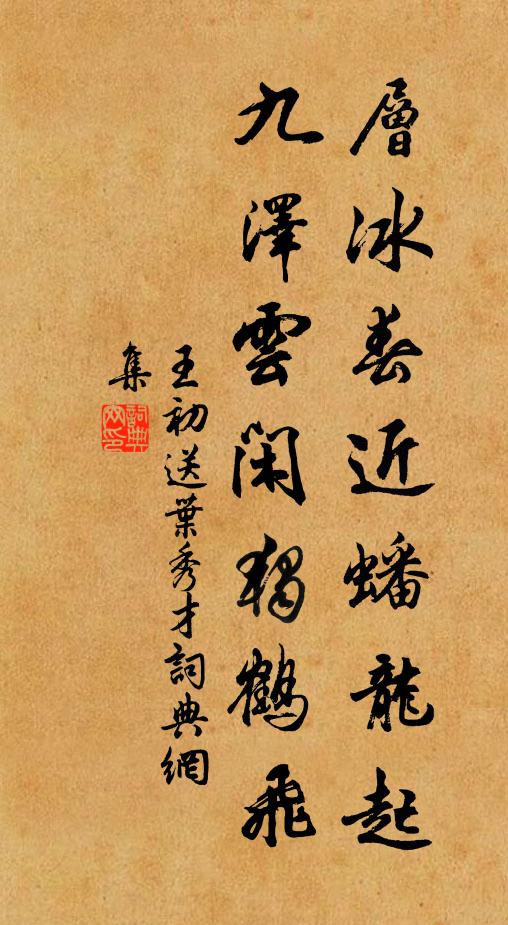 層冰春近蟠龍起
九澤雲閑獨鶴飛
王初送葉秀才詞典網
集
詞典網印